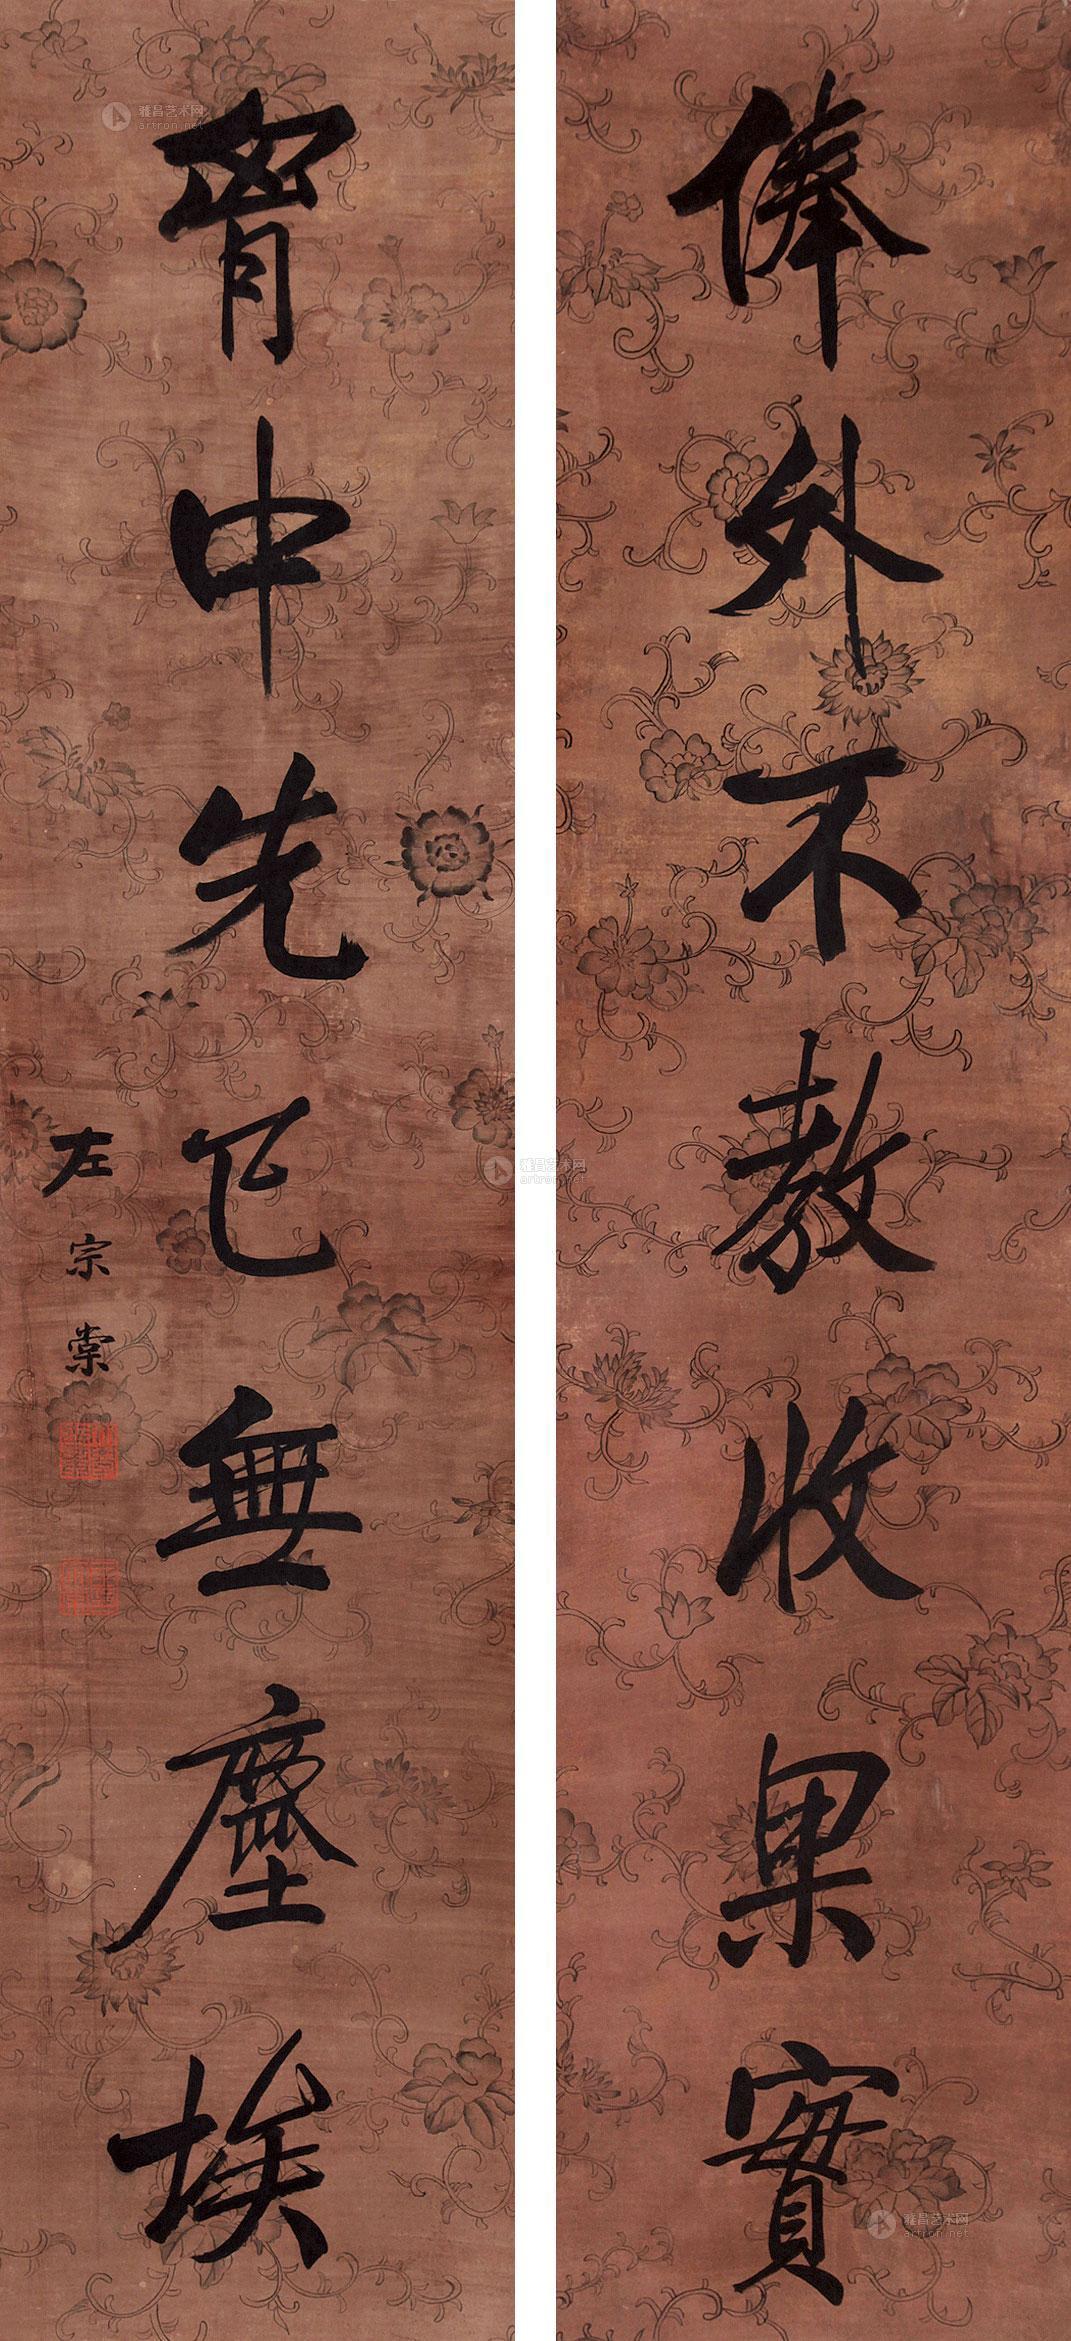 俸外不教收果實
胷中先已無塵埃
左宗棠
雅昌艺术网
artron.net
雅昌艺术网
artron.net
雅昌艺术网
artron.net